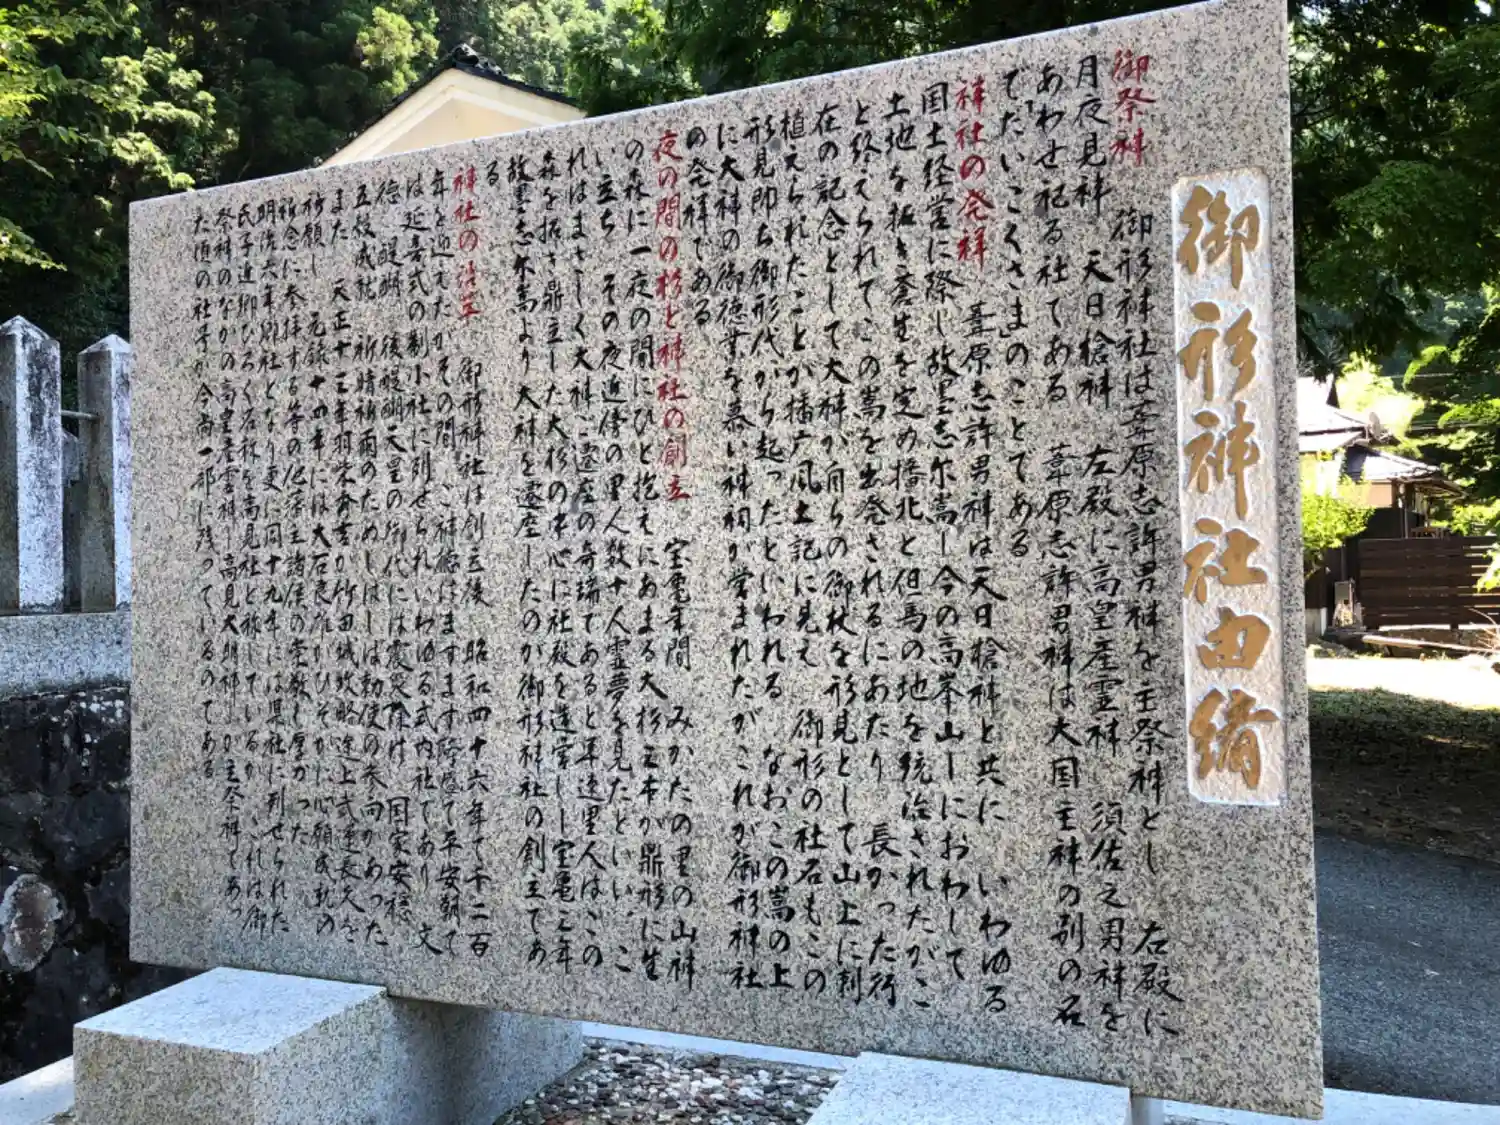 御形神社由緒
御祭神　御形神社は葦原志許男神を主祭神とし　右殿に
月夜見神　天日槍神　左殿に高皇産霊神　須佐之男神を
あわせ祀る社である　葦原志許男神は大国主神の別の名
で「だいこくさま」のことである
神社の発祥　葦原志許男神は天日槍神と共に　いわゆる
国土経営に際し故里志尓嵩―今の高峯山―におわして
土地を拓き蒼生を定め播北と但馬の地を統治されたがこ
と終えられてこの嵩を出発されるにあたり　長かった行
在の記念として大神が自らの御杖を形見として山上に刺
植えられたことが播广風土記に見え　御形の社名もこの
形見即ち御形代から起ったといわれる　なおこの嵩の上
に大神の御徳業を慕い神祠が営まれたがこれが御形神社
の発祥である
夜の間の杉と神社の創立　宝亀年間　みかたの里の山神
の森に一夜の間にひと抱えにあまる大杉三本が鼎形に生
い立ち　その夜近傍の里人数十人霊夢を見たといい、こ
れはまさしく大神ご遷座の奇瑞であると早速里人はこの
森を拓き鼎立した大杉の中心に社殿を造営し宝亀三年
故里志尓嵩より大神を遷座したのが御形神社の創立であ
る
神社の沿革　御形神社は創立後　昭和四十六年で千二百
年を迎えたがその間　ご神徳はますます隆盛で平安朝で
は延喜式の制小社に列せられいわゆる式内社であり　文
徳　醍醐　後醍醐天皇の御代には震災除け　国家安穏
五穀成就　祈晴祈雨のためしばしば勅使の参向があった
また　天正十三年羽柴秀吉が竹田城攻略途上武運長久を
祈願し　元録十四年には大石良雄がひそかに心願成就の
祈念に参拝する等の他藩主諸侯の崇敬も厚かった
明治六年郷社となり更に同十九年には県社に列せられた
氏子近郷ひろく名称を高見社と称しているが、これは御
祭神のなかの高皇産霊神―高見大明神―が主祭神であっ
た頃の社号が今尚一部に残っているのである